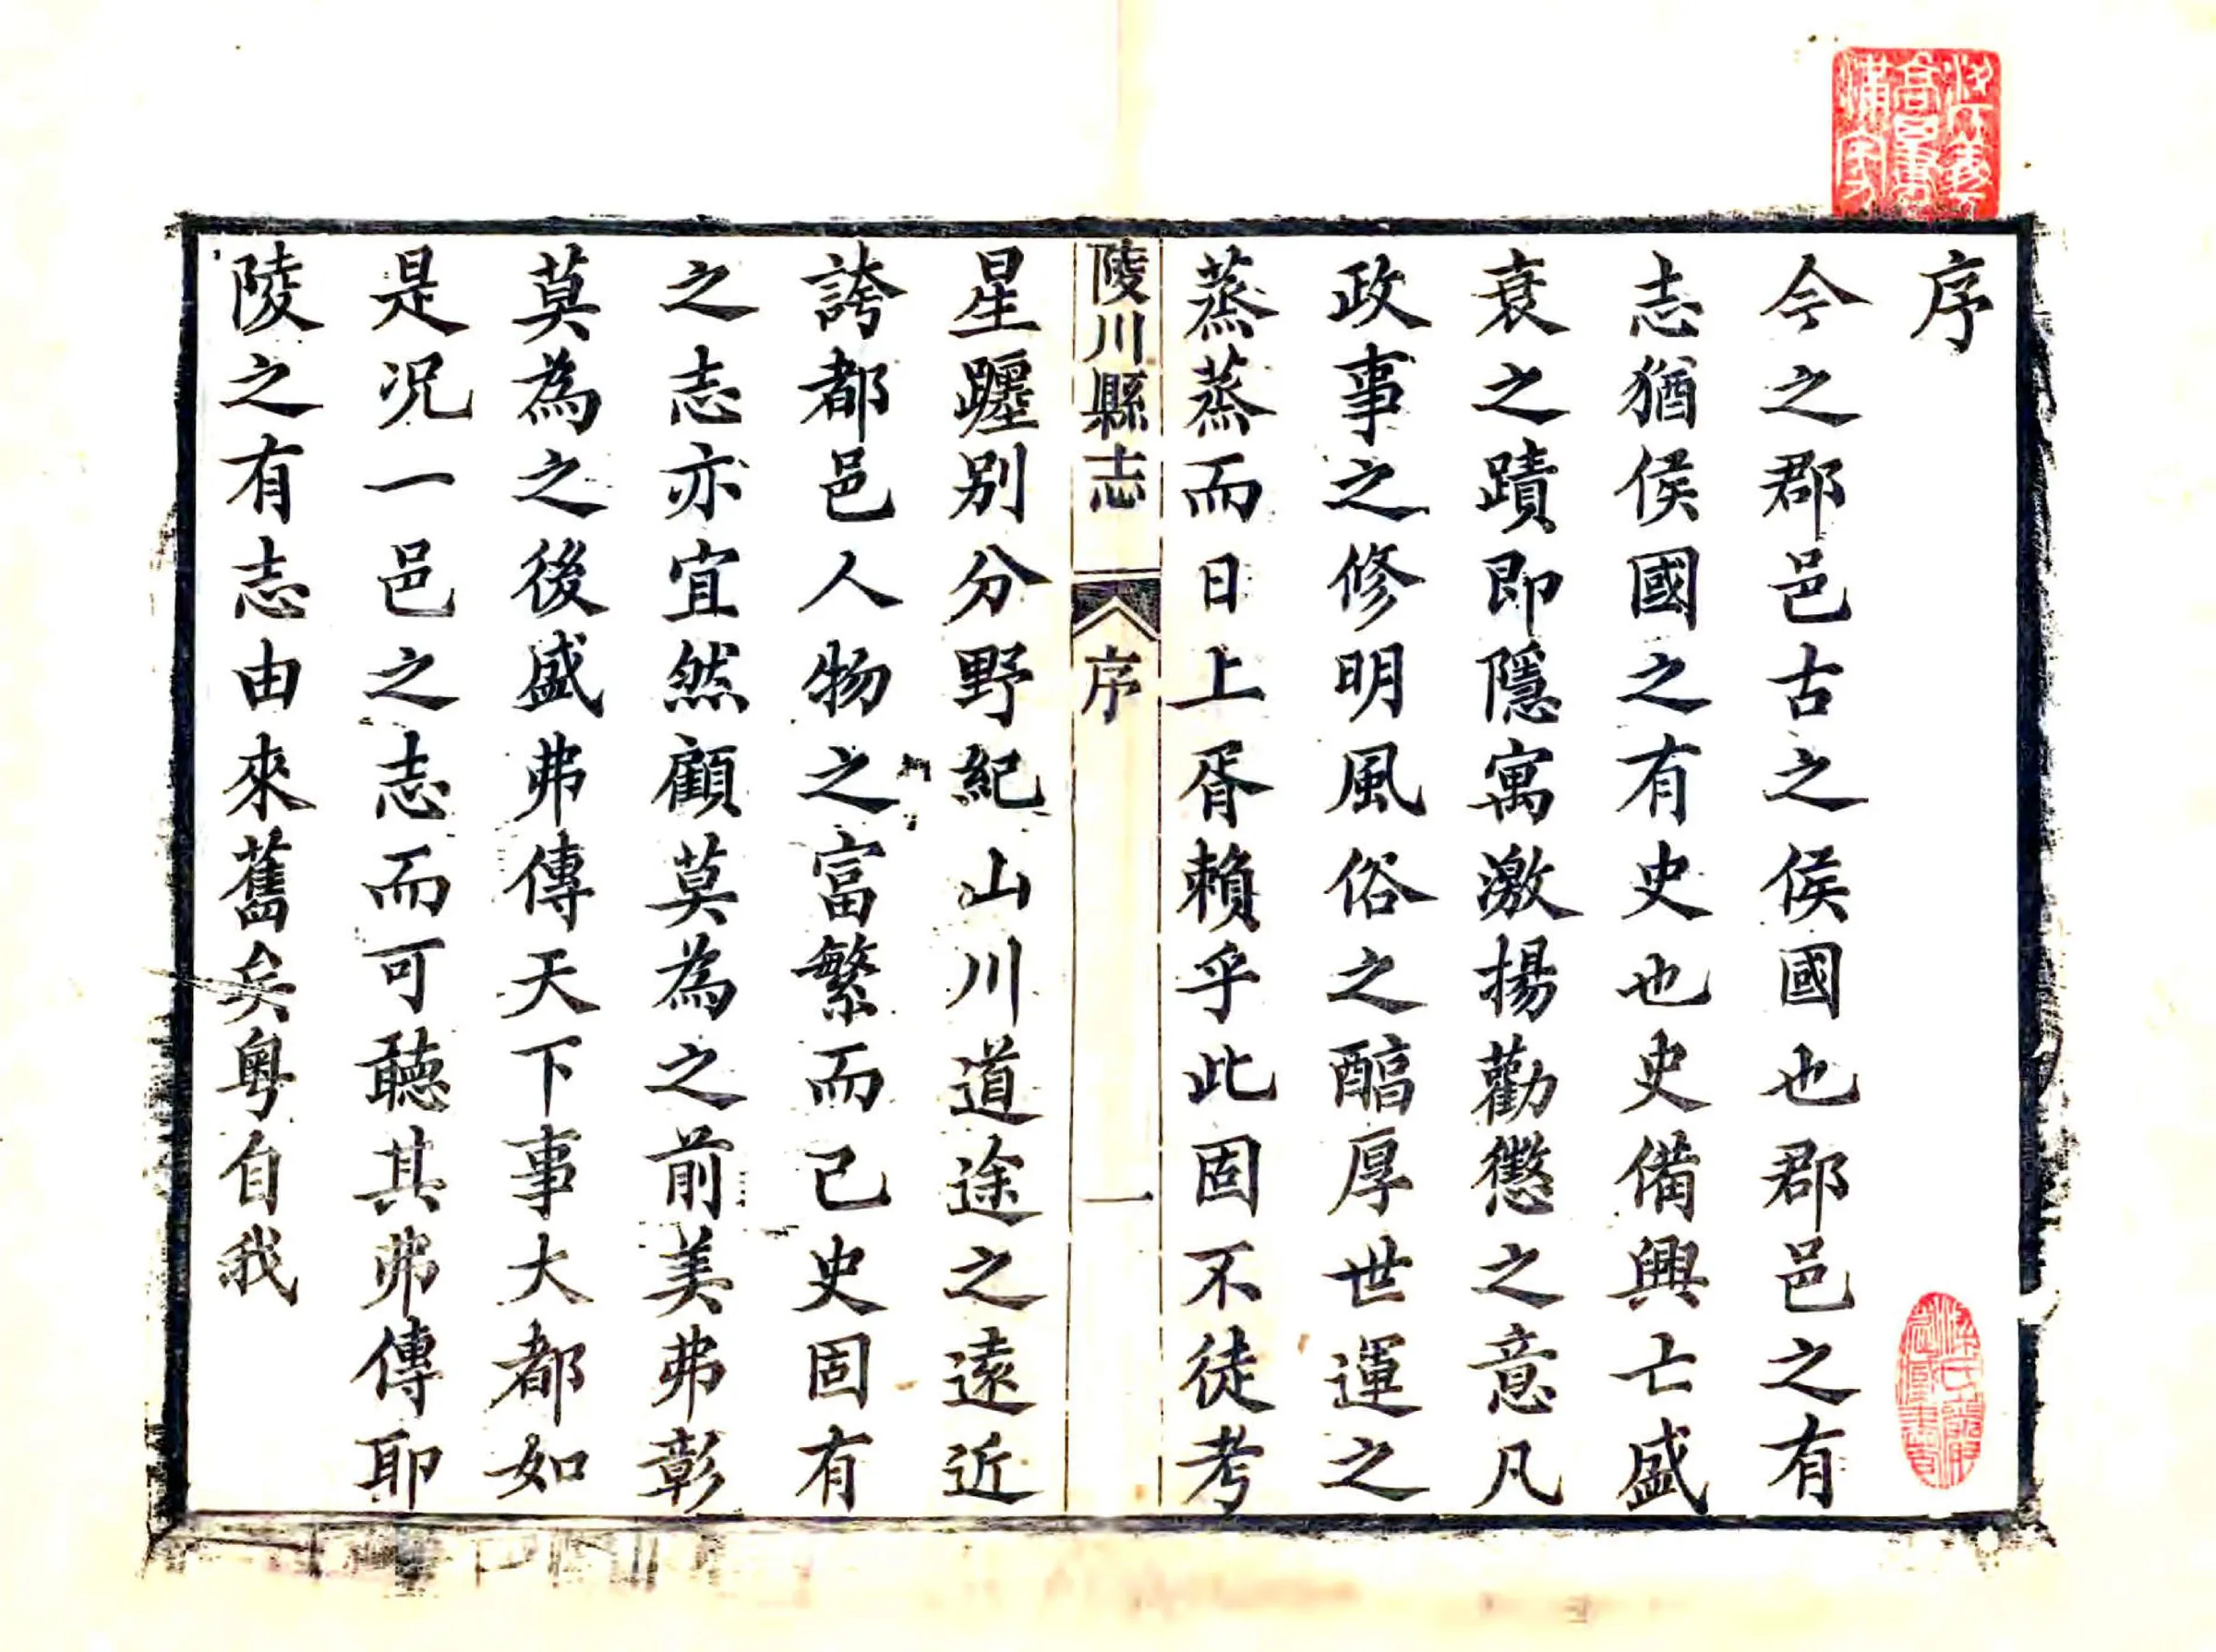 序
今之郡邑古之侯國也郡邑之有
志猶侯國之有史也史備興亡盛
衰之蹟即隱寓激揚勸懲之意凡
政事之修明風俗之醕厚世運之
蒸蒸而日上胥賴乎此固不徒考
陵川縣志 序 一
星躔別分野紀山川道途之遠近
誇都邑人物之富繁而已史固有
之志亦宜然顧莫為之前美弗彰
莫為之後盛弗傳天下事大都如
是况一邑之志而可聽其弗傳耶
陵之有志由來舊矣粵自我